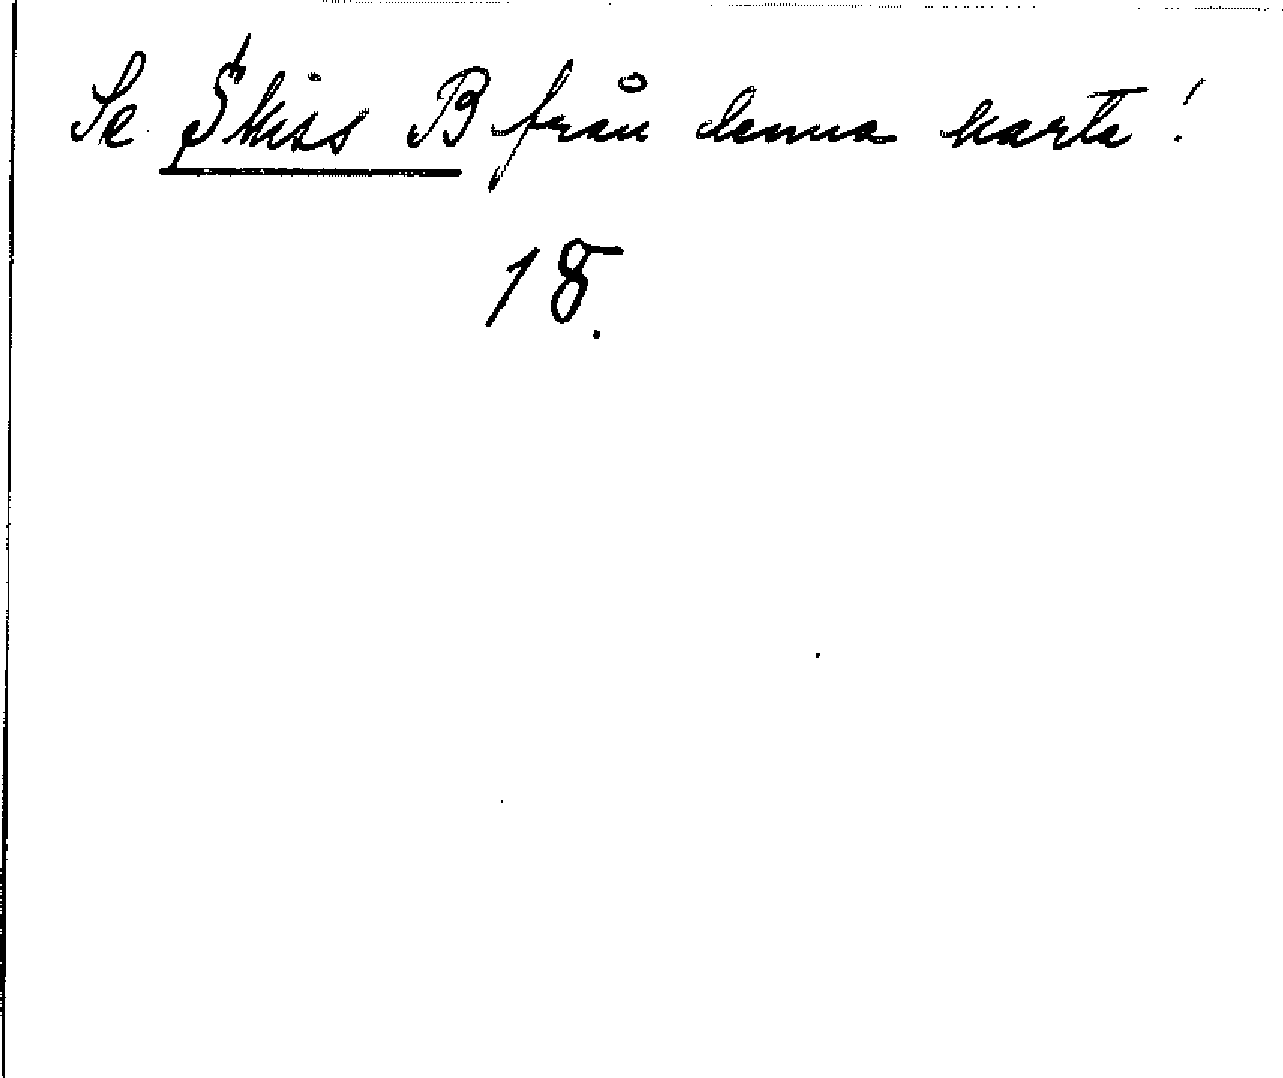 Se Skiss B från denna karta!
18.